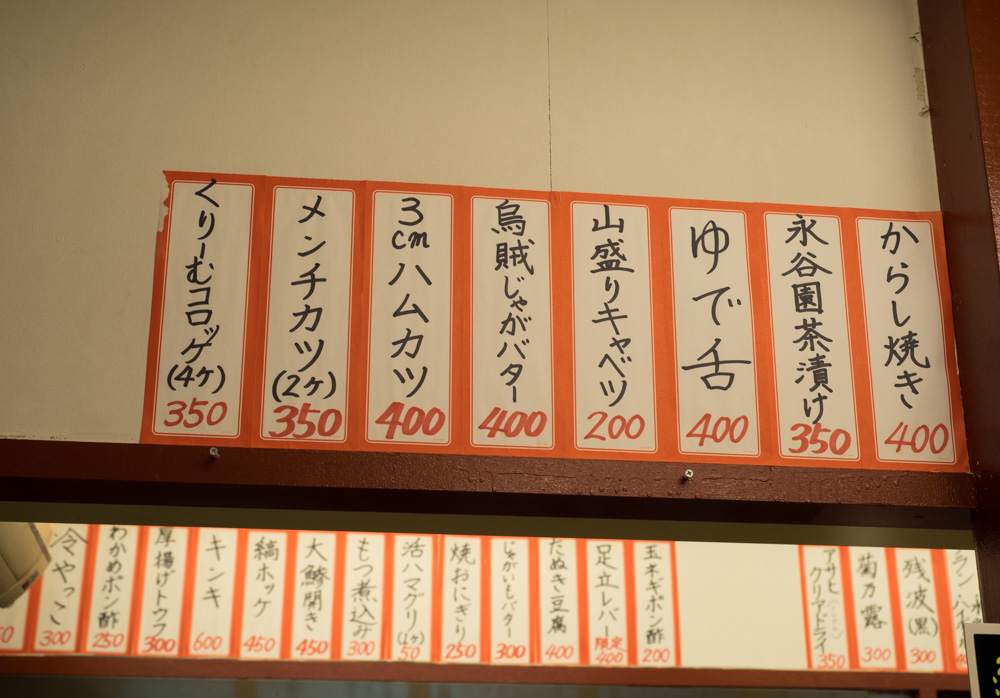 からし焼き
400
永谷園茶漬け
350
ゆで舌
400
山盛りキャベツ
200
烏賊じゃがバター
400
3cmハムカツ
400
メンチカツ(2ヶ)
350
くりーむコロッケ(4ヶ)
350
残波(黒)
300
菊乃露
300
アサヒ
クリアドライ
350
玉ネギポン酢
200
足立レバー
限定
400
たぬき豆腐
400
じゃがいもバター
300
焼おにぎり
250
活ハマグリ(1ヶ)
50
もつ煮込み
300
大鯵開き
450
縞ホッケ
450
キンキ
600
厚揚げトウフ
300
わかめポン酢
250
冷やっこ
300